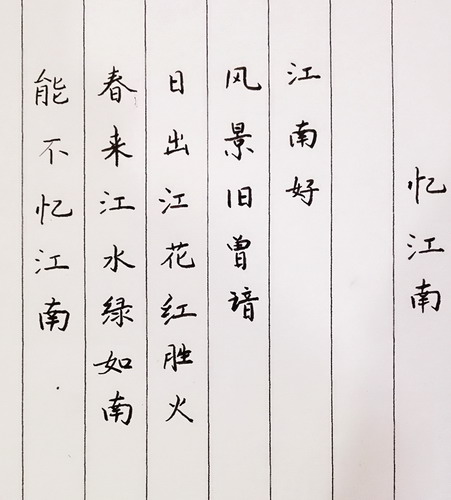 忆江南
江南好
风景旧曾谙
日出江花红胜火
春来江水绿如南
能不忆江南